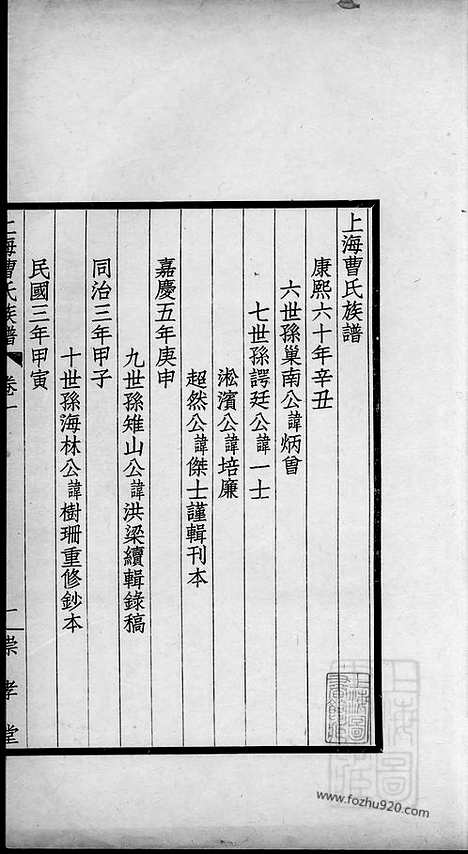 上海曹氏族譜
康熙六十年辛丑
六世孫巢南公諱炳曾
七世孫諤廷公諱一士
淞濱公諱培廉
超然公諱傑士謹輯刊本
嘉慶五年庚申
九世孫雉山公諱洪梁續輯錄稿
同治三年甲子
十世孫海林公諱樹珊重修鈔本
民國三年甲寅
上海曹氏族譜 卷一 一 崇孝堂
上海圖書館藏
www.fozhu920.com